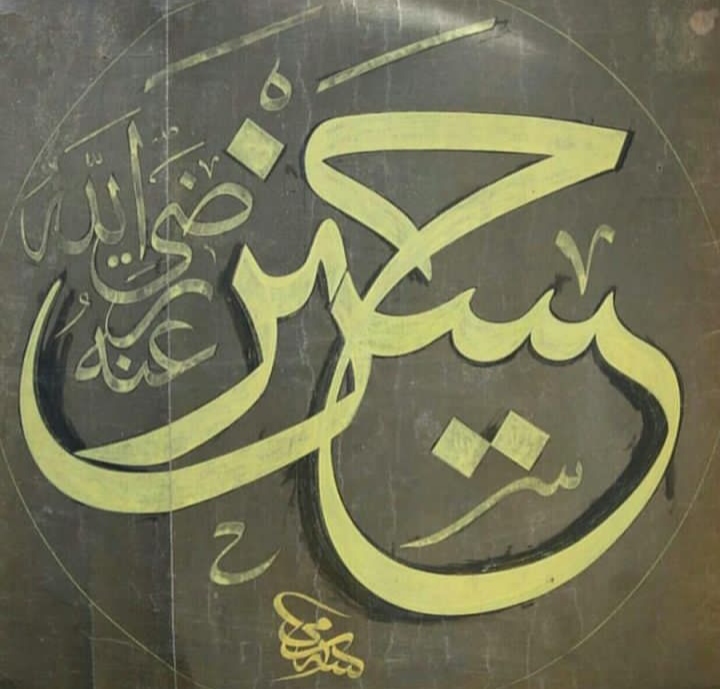 حسين
رضی الله عنه